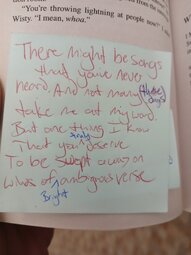 "You're throwing lightning at people now?"
Wisty. "I mean, whoa."
There might be songs
that you've never
heard, And not many these days
take me at my word.
But one thing I know
simply
That you deserve
To be swept away on
winds of ambigrous verse
Bright